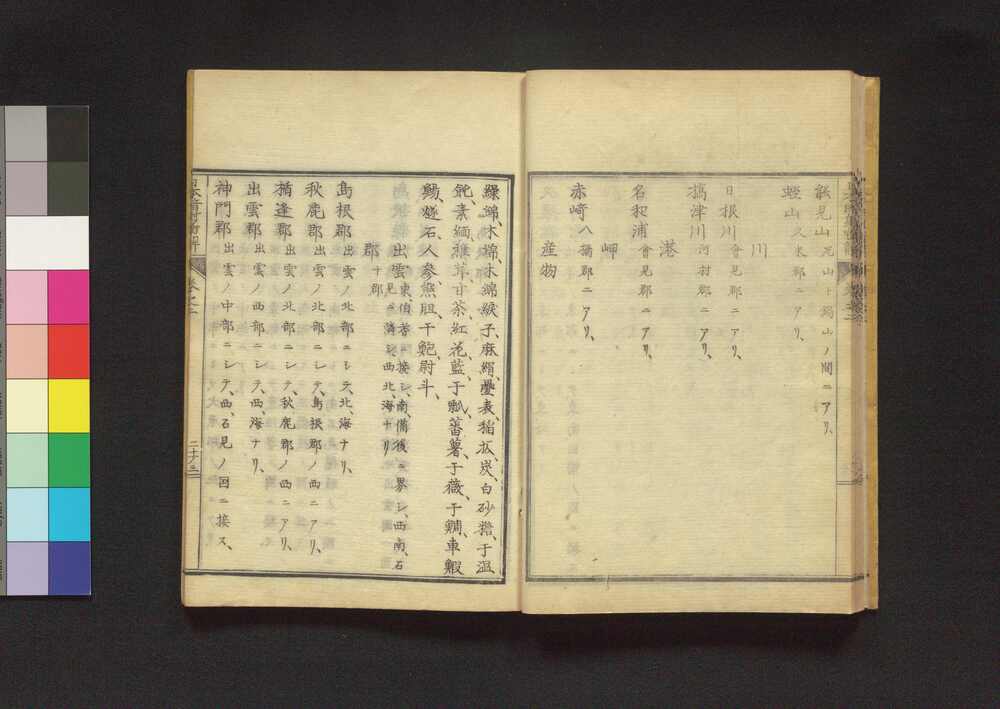 毘山ト鍋山ノ間ニアリ、
蛭山 久米郡ニアリ、
川
日根川 會見郡ニアリ、
橋津川 河村郡ニアリ、
港
名和浦 會見郡ニアリ、
岬
赤崎 八橋郡ニアリ、
産物
繰綿、木綿、木綿綟子、麻絹、疊表、稲扱、炭、白砂糖、干温
飩、素緬、椎茸、甘茶、紅花、藍、干瓢、蕃薯、干薇、干鯛、車鰕、
鯣、燧石、人參、熊胆、干鮑、尉斗、
出雲 東、伯耆ニ接シ、南、備後ニ界シ、西南、石見ニ隣シ、西北、海ナリ
郡 十郡
島根郡 出雲ノ北部ニシテ、北、海ナリ、
秋鹿郡 出雲ノ北部ニシテ島根郡ノ西ニアリ、
楯逢郡 出雲ノ北部ニシテ秋鹿郡ノ西ニアリ、
出雲郡 出雲ノ西部ニシテ、西、海ナリ、
神門郡 出雲ノ中部ニシテ、西、石見ノ国ニ接ス、
卷之二